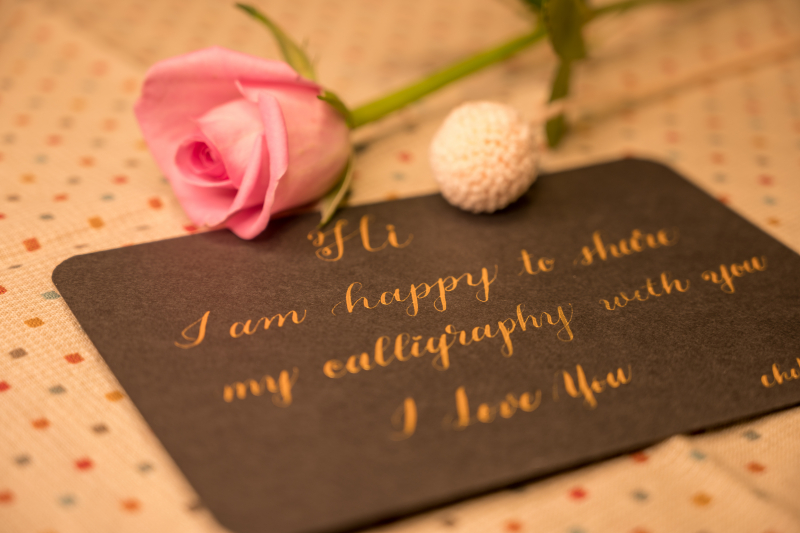 Hi
I am happy to share
my calligraphy with you
I Love You